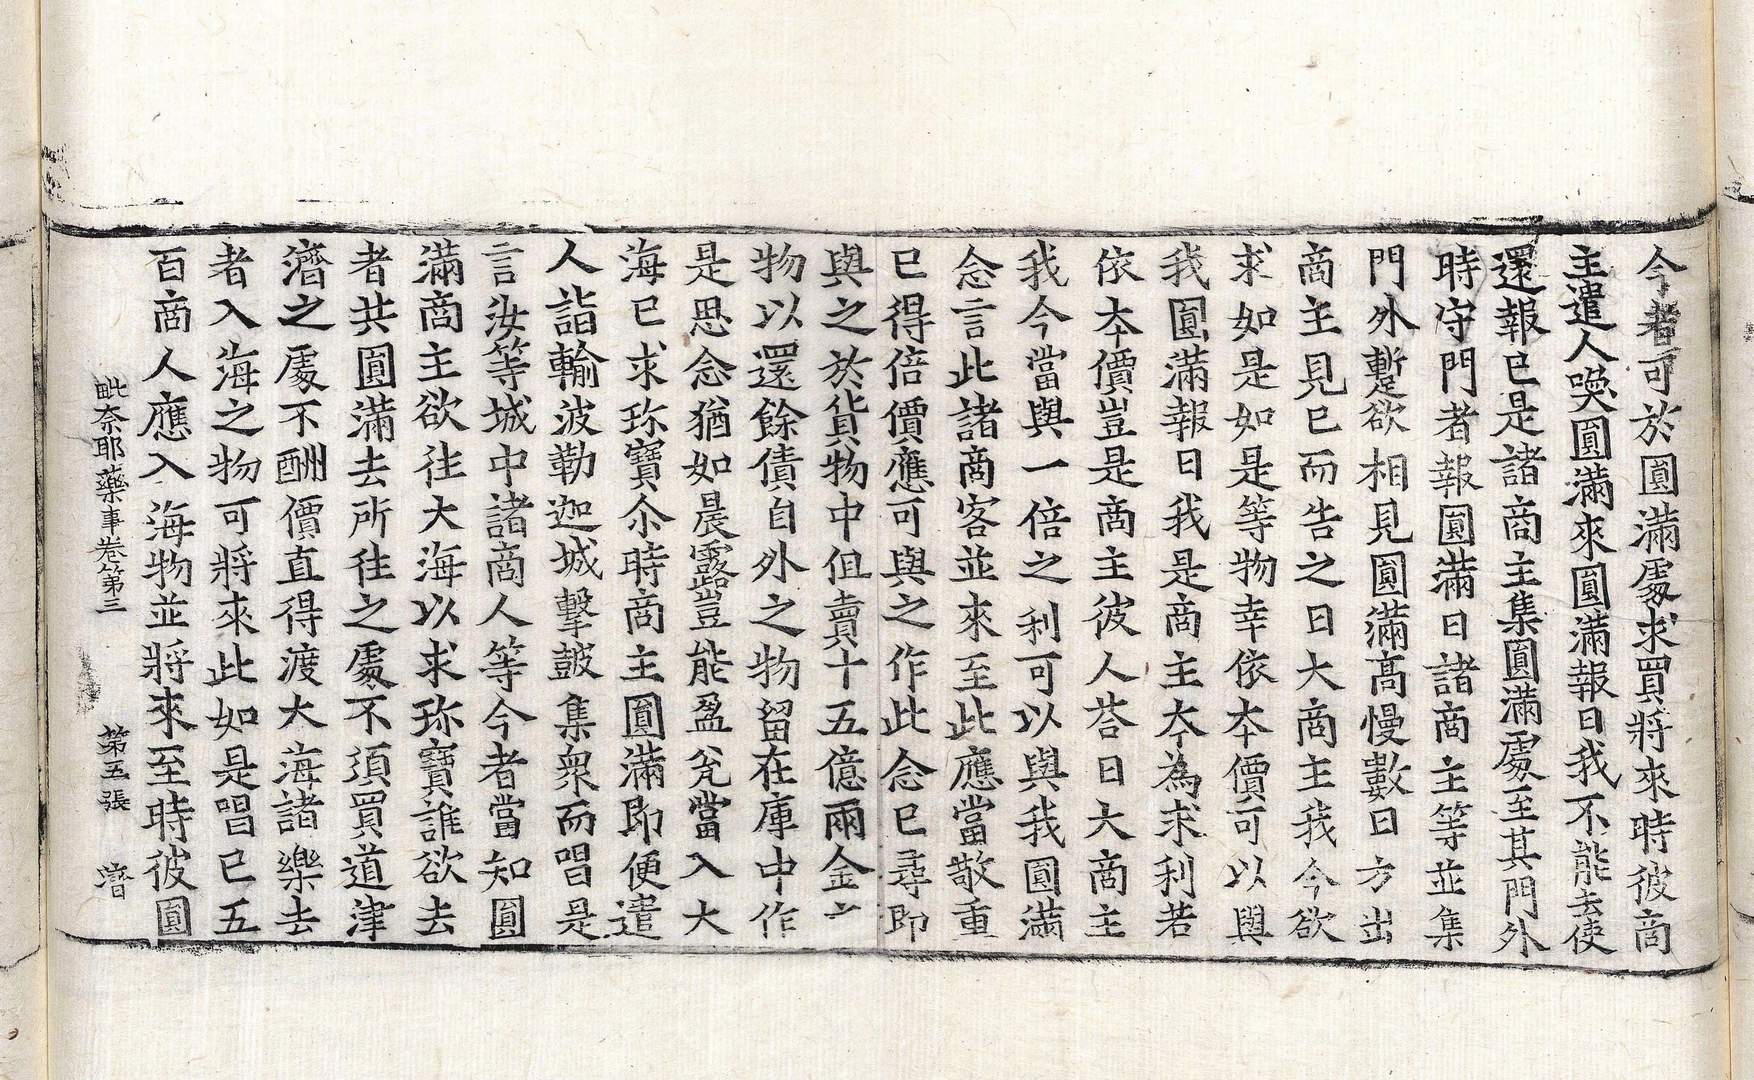 今者可於圓滿處求買將來時彼商
主遣人喚圓滿來圓滿報曰我不能去使
還報已是諸商主集圓滿處至其門外
時守門者報圓滿曰諸商主等並集
門外蹔欲相見圓滿高慢數日方出
商主見已而告之曰大商主我今欲
求如是如是等物幸依夲價可以與
我圓滿報曰我是商主夲為求利若
依夲價豈是商主彼人荅曰大商主
我今當與一倍之利可以與我圓滿
念言此諸商客並來至此應當敬重
已得倍價應可與之作此念已尋即
與之於貨物中但賣十五億兩金之
物以還餘債自外之物留在庫中作
是思念猶如晨露豈能盈瓮當入大
海已求珎寶尒時商主圓滿即便遣
人詣輸波勒迦城擊鼓集衆而唱是
言汝等城中諸商人等今者當知圓
滿商主欲往大海以求珎寶誰欲去
者共圓滿去所往之處不須買道津
濟之處不酬價直得渡大海諸樂去
者入海之物可將來此如是唱已五
百商人應入海物並將來至時彼圓
毗奈耶藥事卷第三 第五張 濟